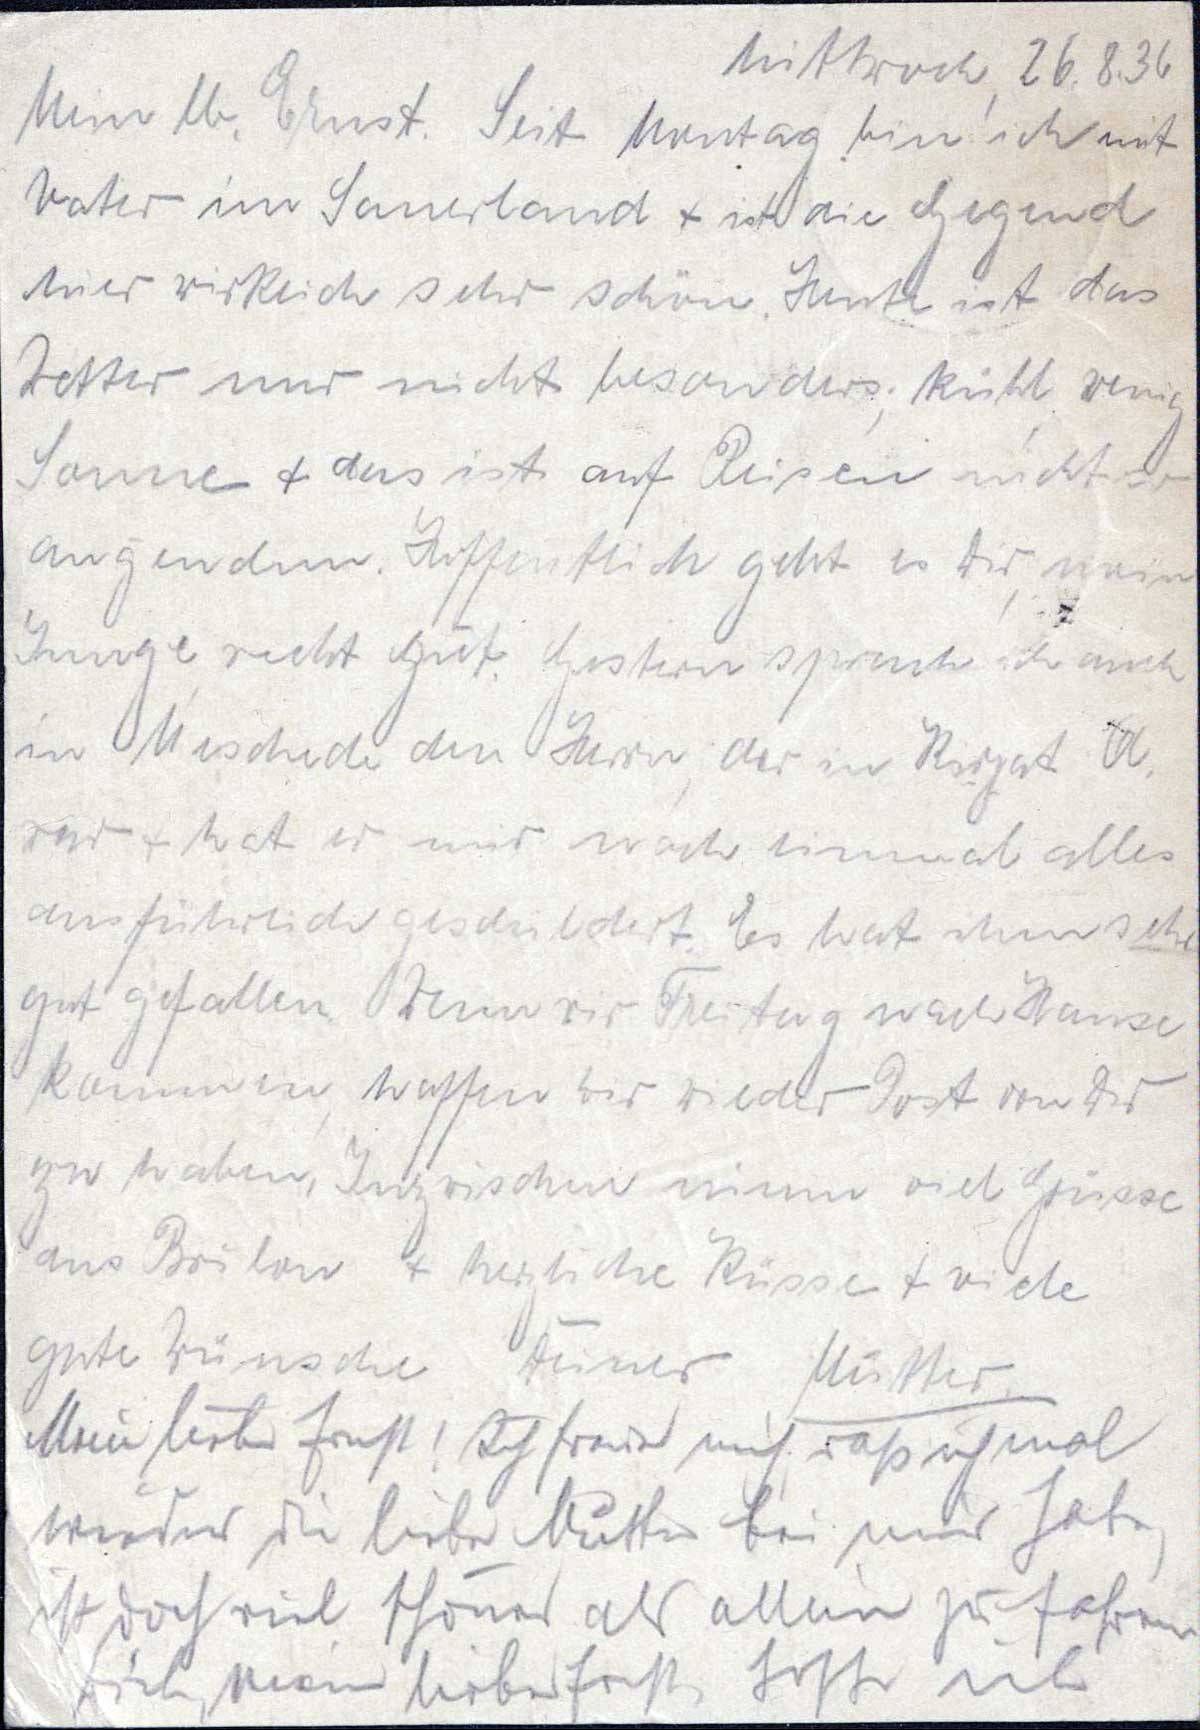 Mittwoch, 26.8.36
Mein lb. Ernst. Seit Montag bin ich mit
Vater im Sauerland + ist die Gegend
hier wirklich sehr schön. Heute ist das
Wetter nur nicht besonders, kühl, wenig
Sonne + das ist auf Reisen nicht so
angenehm. Hoffentlich geht es Dir, mein
Junge, recht gut. Gestern sprach ich auch
in Meschede den Herrn, der in Kirjat A.
war + hat er mir noch einmal alles
ausführlich geschildert. Es hat ihm sehr
gut gefallen. Wenn wir Freitag nach Hause
kommen, hoffen wir wieder Post von Dir
zu haben. Inzwischen nimm viel Grüsse
aus Brilon + herzliche Küsse + viele
gute Wünsche Deiner Mutter.
Mein lieber Ernst! Ich freue mich, dass ich mal
wieder die liebe Mutter bei mir habe,
ist doch viel schöner als allein zu fahren
Dich, mein lieber Ernst, hoffe ich